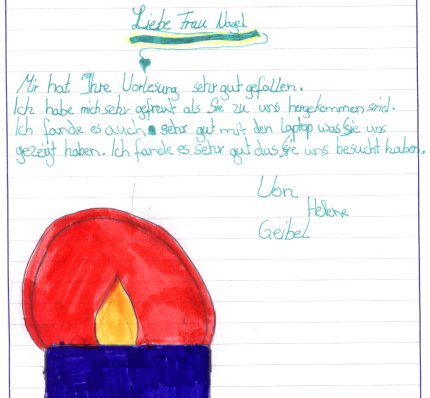 Liebe Frau Nagel
Mir hat Ihre Vorlesung sehr gut gefallen.
Ich habe mich sehr gefreut als Sie zu uns hergekommen sind.
Ich fande es auch sehr gut mit den Laptop was Sie uns
gezeigt haben. Ich fande es sehr gut das Sie uns besucht haben.
Von
Helene
Geibel